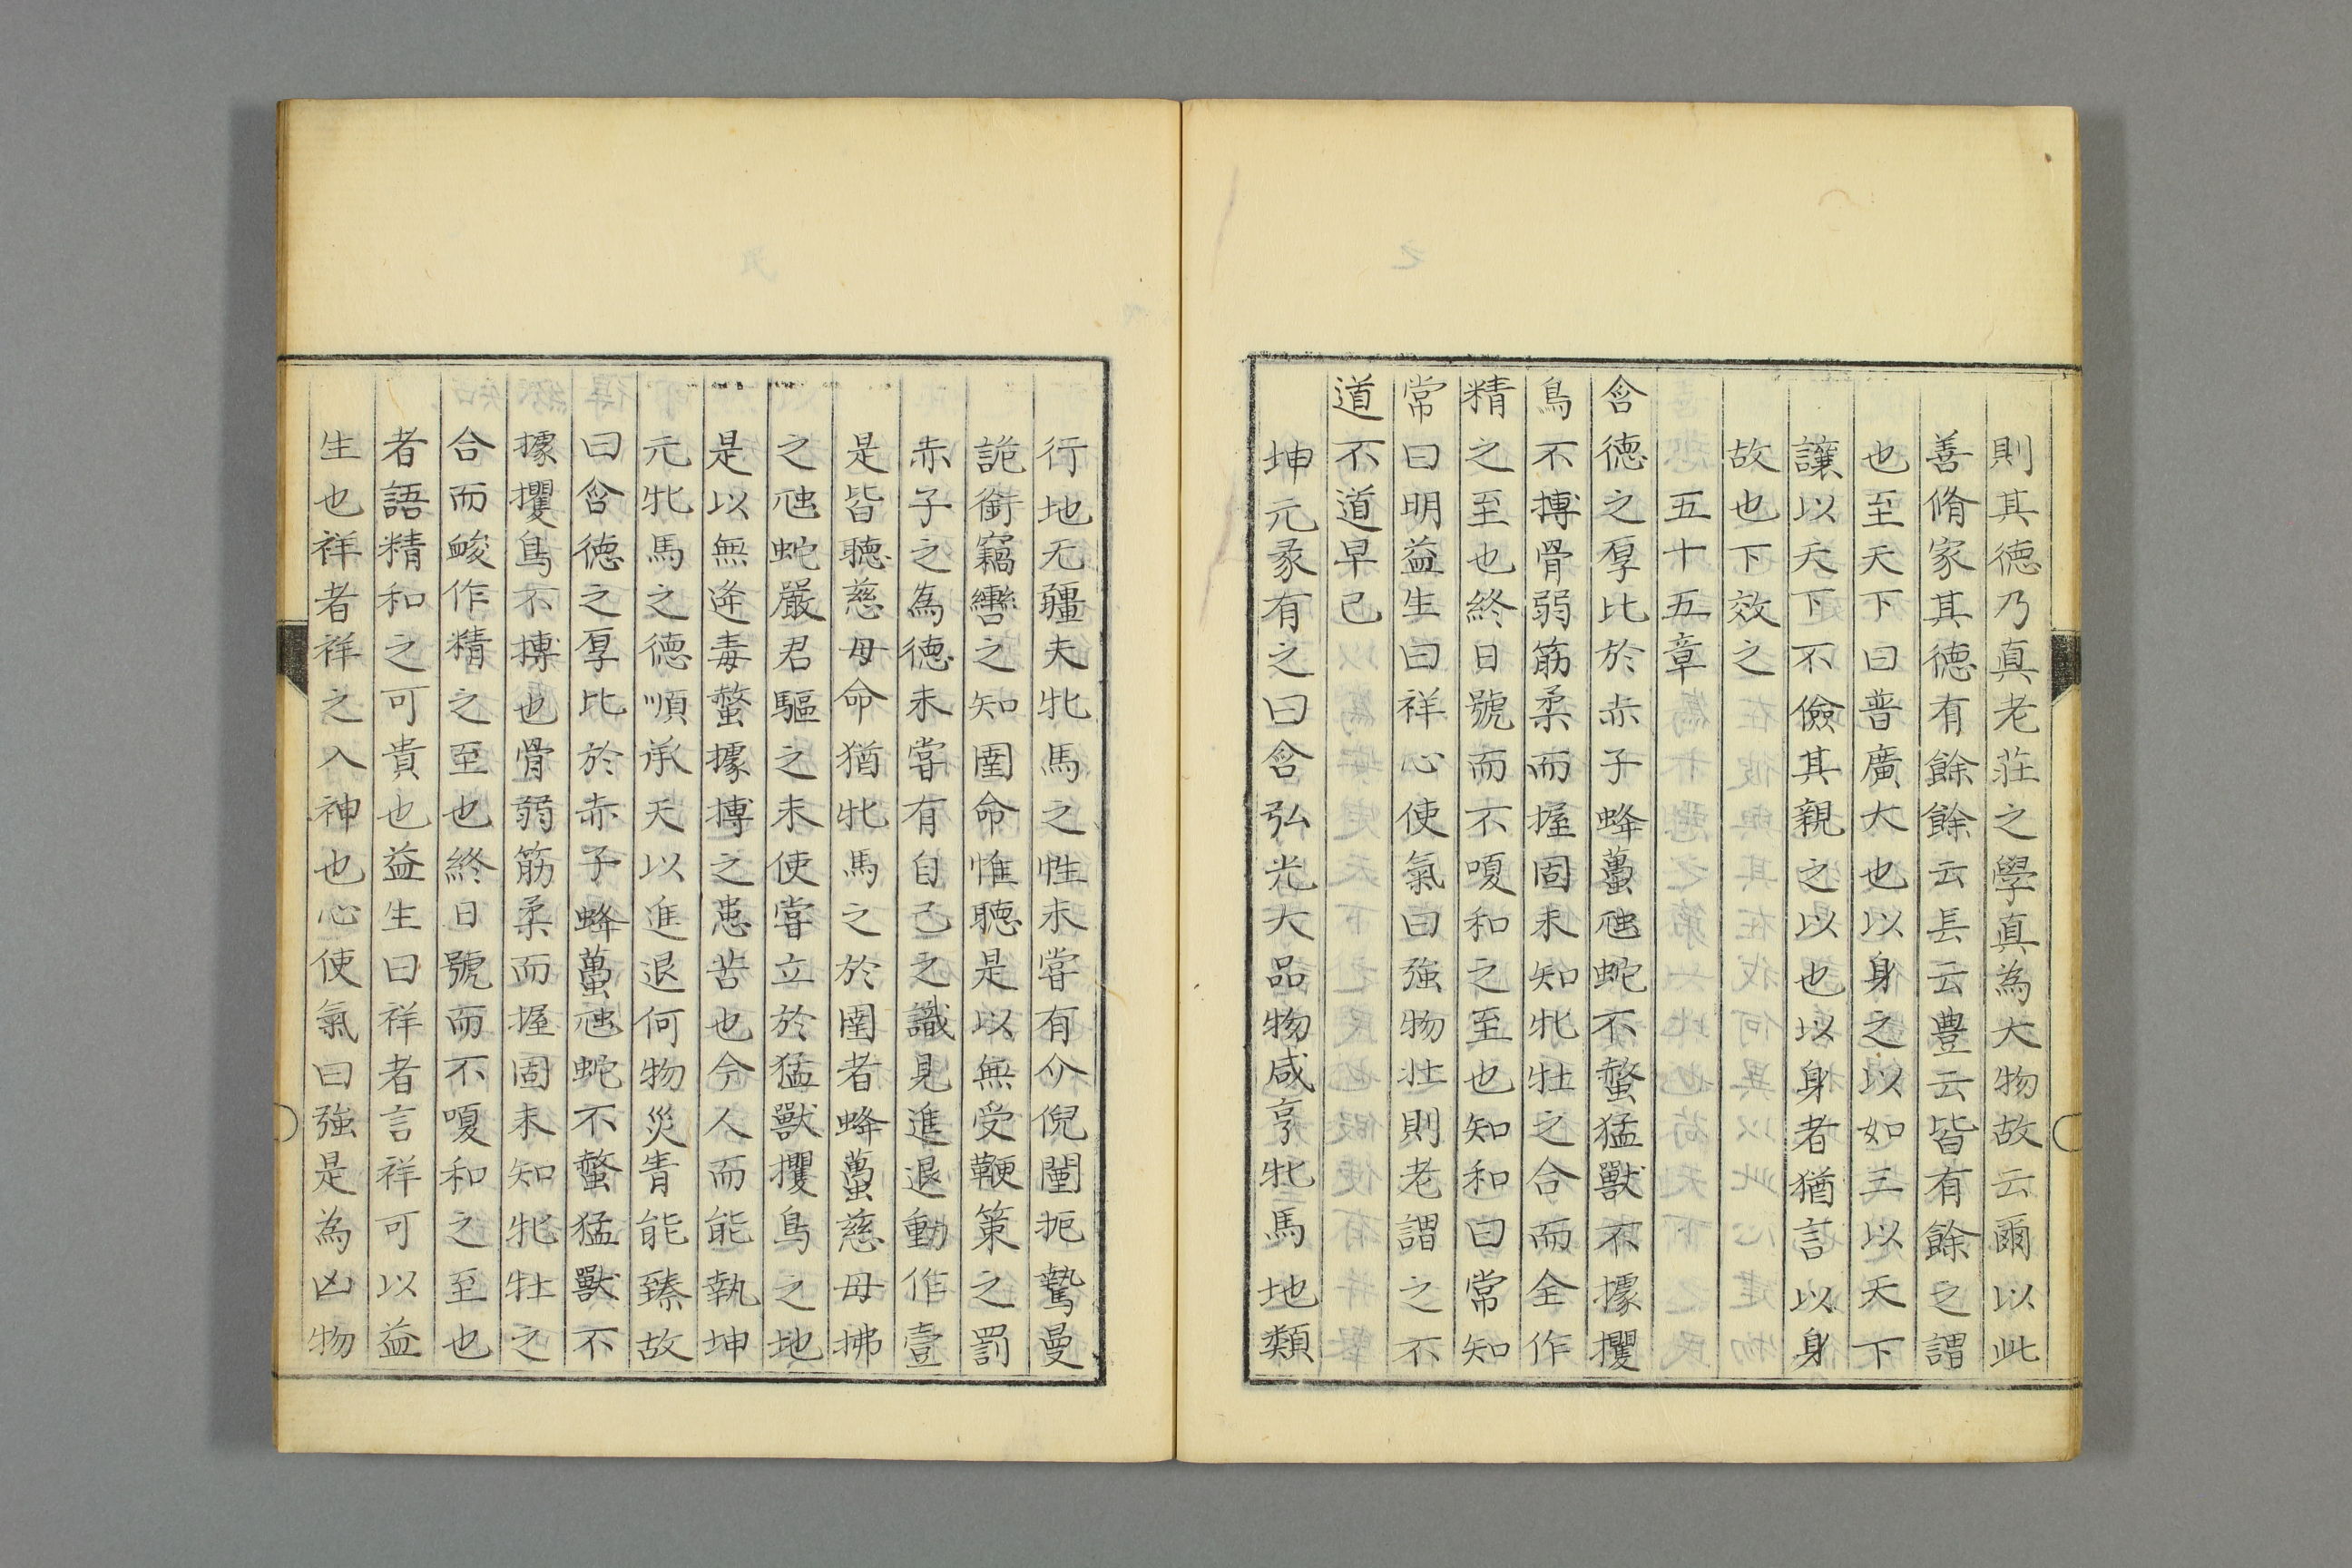 則其德乃真老莊之學真為大物故云爾以此
善脩家其德有餘餘云長云豊云皆有餘之謂
也至天下曰普廣大也以身之以如三以天下
讓以天下不儉其親之以也以身者猶言以身
故也下效之
五十五章
含德之厚比於赤子蜂蠆虺蛇不螫猛獸不據攫
鳥不搏骨弱筋柔而握固未知牝牡之合而全作
精之至也終日號而不嗄和之至也知和曰常知
常曰明益生曰祥心使氣曰強物壯則老謂之不
道不道早已
坤元彖有之曰含弘光大品物咸亨牝馬地類
行地无疆夫牝馬之性未嘗有介倪闉扼鷙曼
詭銜竊轡之知圉命惟聽是以無受鞭策之罰
赤子之為德未嘗有自己之識見進退動作壹
是皆聽慈母命猶牝馬之於圉者蜂蠆慈母拂
之虺蛇嚴君驅之未使嘗立於猛獸攫鳥之地
是以無逢毒螫據搏之患苦也今人而能執坤
元牝馬之德順承天以進退何物災眚能臻故
曰含德之厚比於赤子蜂蠆虺蛇不螫猛獸不
據攫鳥不搏也骨弱筋柔而握固未知牝牡之
合而峻作精之至也終日號而不嗄和之至也
者語精和之可貴也益生曰祥者言祥可以益
生也祥者祥之入神也心使氣曰強是為凶物